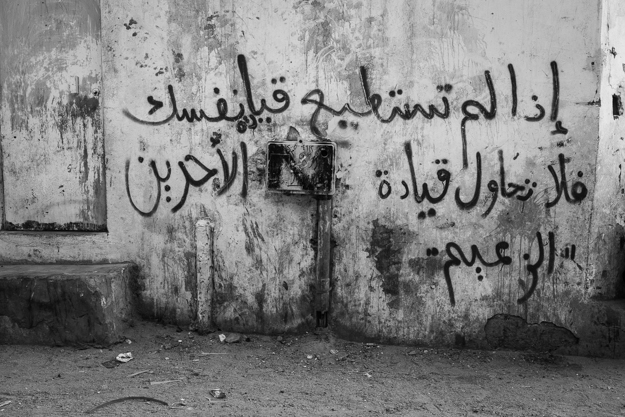 إذا لم تستطيع قيادة نفسك
فلا تحاول قيادة الأخرين
"الزعيم"